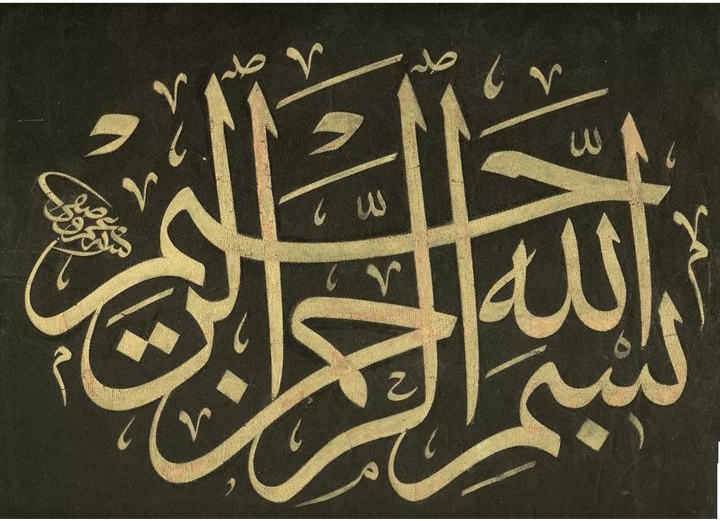 بِسْمِ اللَّه الرَّحمن الرَّحِيم